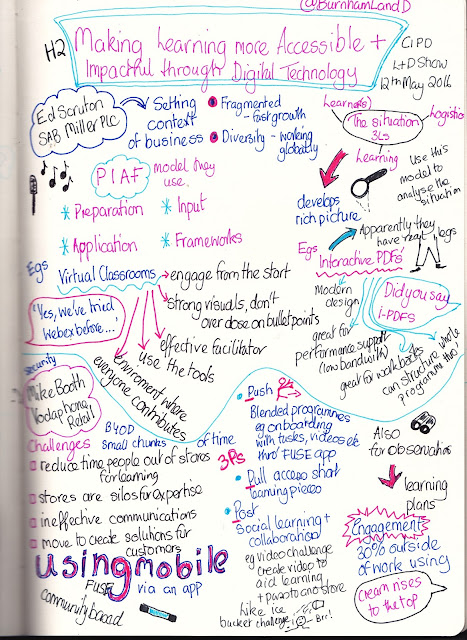 @BurnhamLandD
H2
Making Learning more Accessible +
Impactful through Digital Technology
CIPD
L+D Show
12th May 2016
Ed Scruton
SAB Miller PLC
Setting
context
of business
Fragmented
- fast growth
Diversity - working
globally
Learner(s)
Logistics
The situation
3Ls
Learning
Use this
model to
analyse the
situation
develops
rich picture
PIAF
model they
use.
* Preparation
* Input
* Application
* Frameworks
Apparently they
have real legs
Egs
'Interactive PDFs'
Egs
Virtual Classrooms
engage from the start
strong visuals, don't
over dose on bullet points
effective facilitator
use the tools
Enviroment where
everyone contributes
'Yes, we've tried
Webex before...'
Modern
design
great for
performance support
(low bandwith)
great for workbooks
can structure whole
programme thro'
Did you say
I-PDFS
security
Mike Booth
Vodaphone
Retail
Challenges
BYOD
small chunks of time
reduce time people out of stores
for learning
stores are silos for expertise
ineffective communications
move to create solutions for
customers
using mobile
FUSE via an app
community based
3Ps
Push
Blended programmes
eg onboarding
with tasks, videos etc
thro' FUSE app
Pull access short
learning pieces
Post
social learning +
collaboration
eg video challenge
create video to
aid learning
+ pass to another store
like ice
bucket challenge
Brr!
Also
for observation
learning
plans
Engagement
30% outside
of work using
Cream rises
to the top